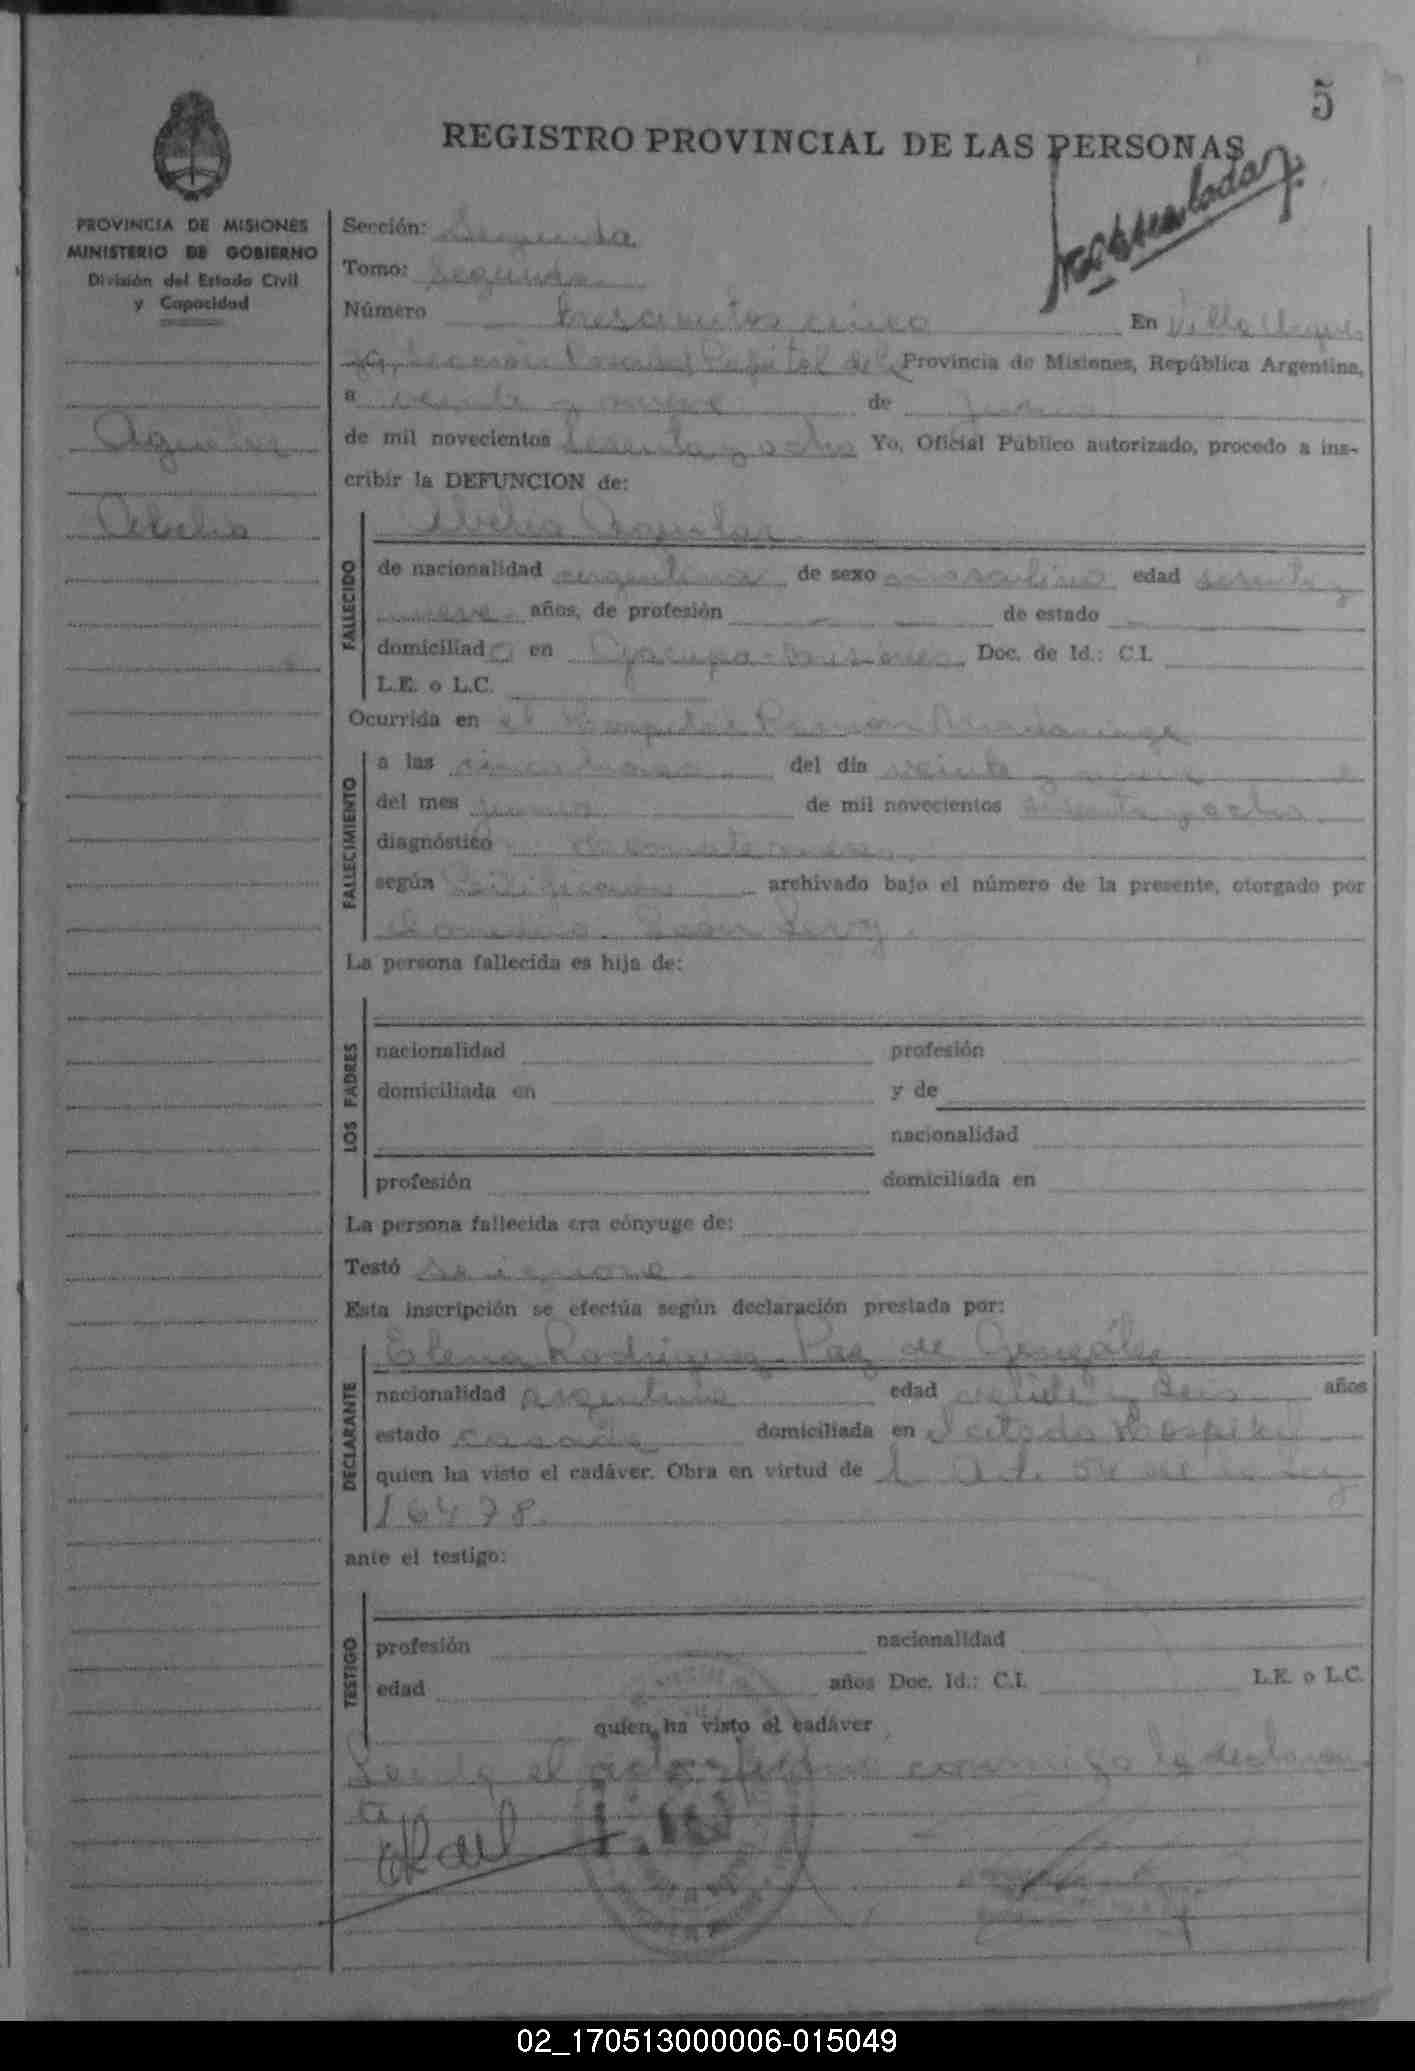 5
REGISTRO PROVINCIAL DE LAS PERSONAS
PROVINCIA DE MISIONES
MINISTERIO DE GOBIERNO
División del Estado Civil
y Capacidad
Aguilar
Abelio
Sección: Segunda
Tomo: Segundo
Número trescientos cinco En Villa
Capital de la Provincia de Misiones, República Argentina,
a veinte y nueve de junio
de mil novecientos sesenta y ocho Yo, Oficial Público autorizado, procedo a ins-
cribir la DEFUNCION de:
Abelio Aguilar
FALLECIDO
de nacionalidad argentina de sexo masculino edad sesenta y
nueve años, de profesión de estado
domiciliado en Misiones Doc. de Id.: C.I.
L.E. o L.C.
Ocurrida en el Hospital Ramón Madariaga
FALLECIMIENTO
a las cinco horas del día veinte y nueve
del mes junio de mil novecientos sesenta y ocho
diagnóstico
según archivado bajo el número de la presente, otorgado por
el médico
La persona fallecida es hija de:
LOS PADRES
nacionalidad profesión
domiciliada en y de
nacionalidad
profesión domiciliada en
La persona fallecida era cónyuge de:
Testó se ignora
Esta inscripción se efectúa según declaración prestada por:
Elena Rodriguez Paz de González
DECLARANTE
nacionalidad argentina edad veinte y seis años
estado casada domiciliada en el citado Hospital
quien ha visto el cadáver. Obra en virtud de
16478
ante el testigo:
TESTIGO
profesión nacionalidad
edad años Doc. Id.: C.I. L.E. o L.C.
quien ha visto el cadáver
Leida el acta firma conmigo la declaran
te
02_170513000006-015049